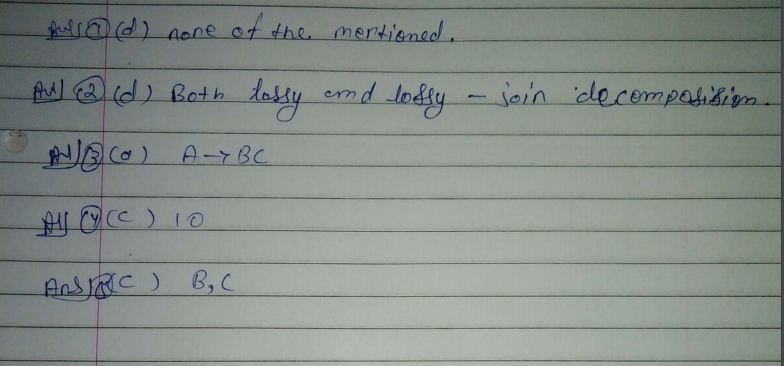 Ans ① (d) none of the mentioned.
Ans ② (d) Both lossy and lossy - join decomposition.
Ans ③ (a) A → BC
Ans ④ (c) 10
Ans (c) B, C